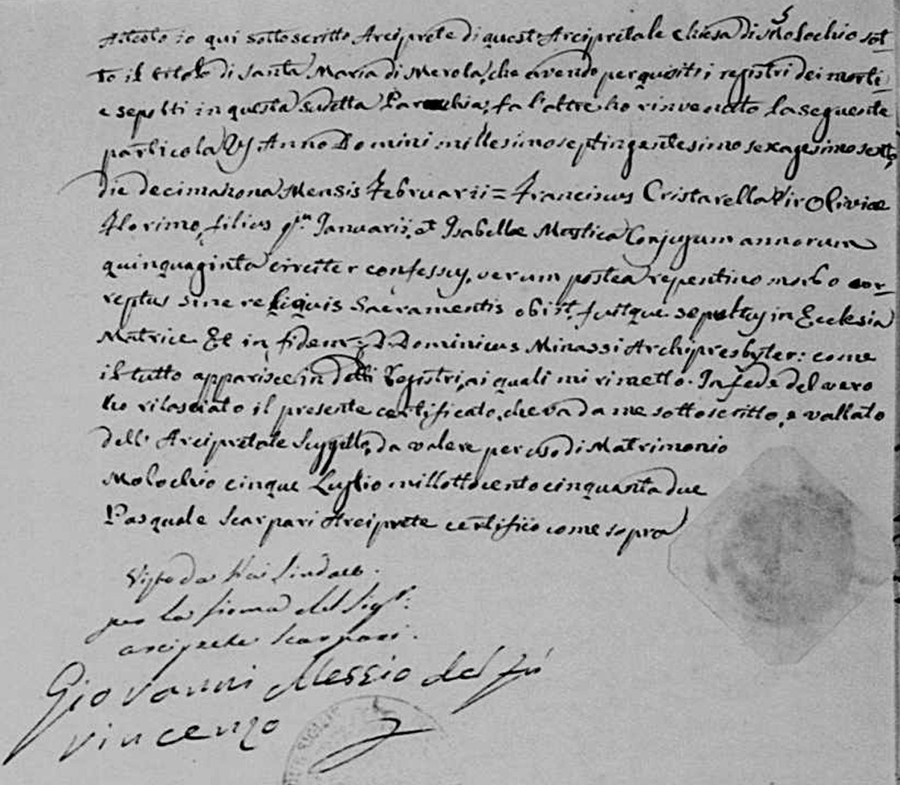 Attesto io qui sottoscritto Arciprete di quest'Arcipretale chiesa di Molochio sot-
to il titolo di Santa Maria di Merola, che avendo perquisiti i registri dei morti
e sepolti in questa sudetta Parocchia, fra l'altre ho rinvenuto la seguente
particola Anno Domini millesimo septingentesimo sexagesimo sexto,
die decimanona Mensis Februarii = Franciscus Cristarella Vir Oliviae
Florimo, filius qm Januarii, et Isabellae Mastica Conjugum annorum
quinquaginta circiter confessus, verum postea repentino morbo cor-
reptus sine reliquis Sacramentis obiit, fuitque sepultus in Ecclesia
Matrice Et in fidem = D. Dominicus Minassi Archipresbyter: come
il tutto apparisce in detti registri, ai quali mi rimetto. In fede del vero
ho rilasciato il presente certificato, che va da me sottoscritto, e vallato
dell'Arcipretale Suggello, da valere per uso di Matrimonio
Molochio cinque Luglio millottocentocinquanta due
Pasquale Scarpari Arciprete certifico come sopra
Visto da Noi Sindaco
per la firma del Sigr.
arciprete Scarpari.
Giovanni Alessio del fu
Vincenzo